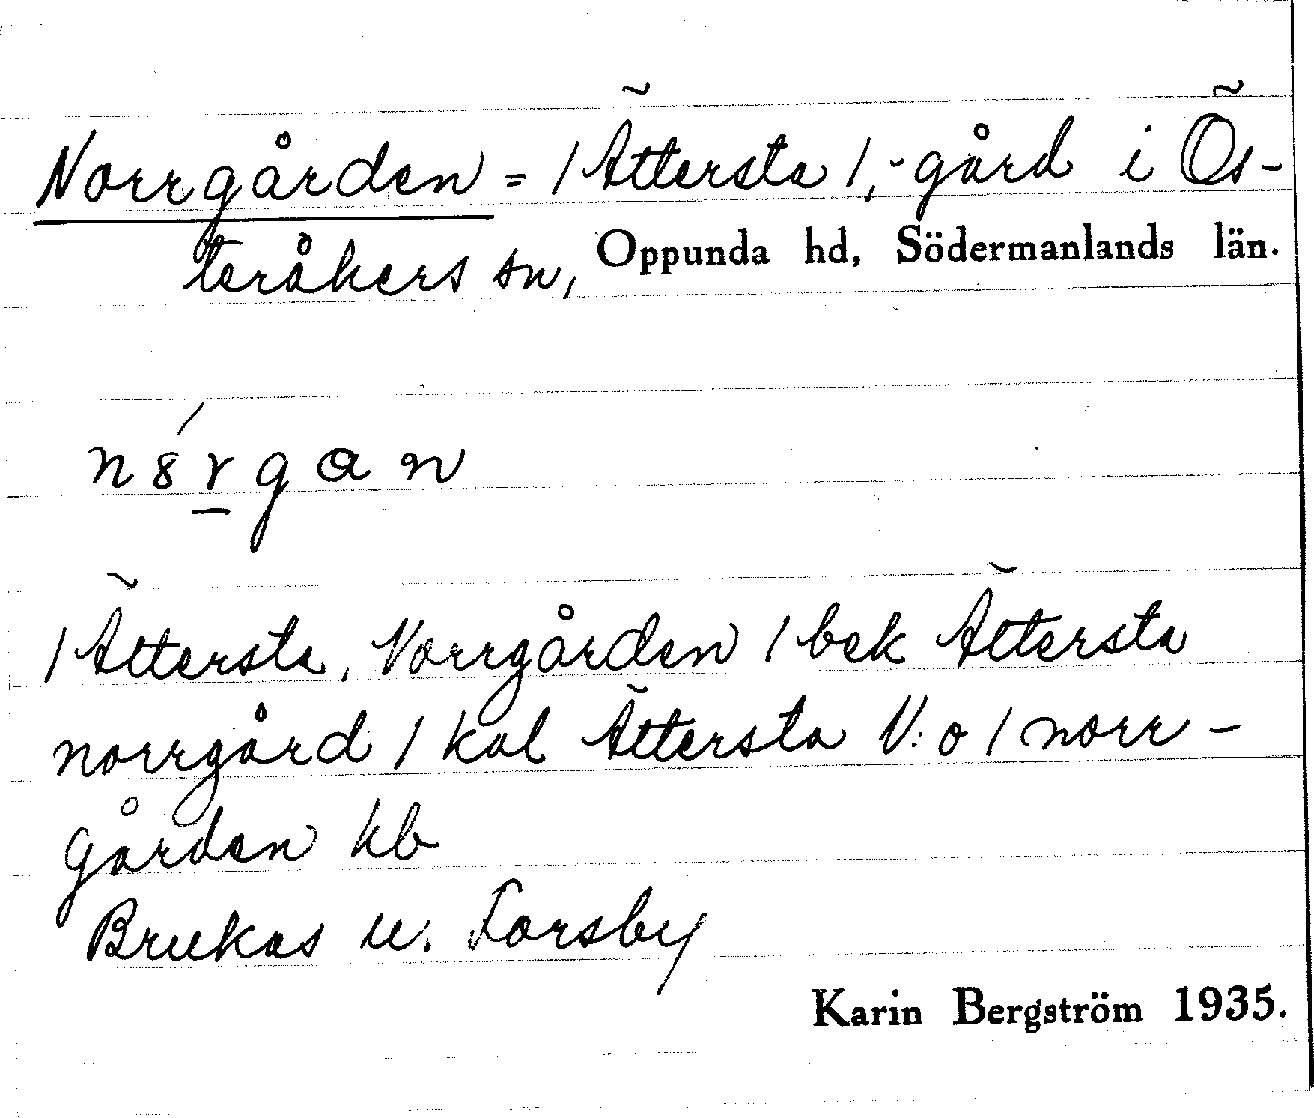 Norrgården = / Ättersta /, -gård i Ös-
teråkers sn, Oppunda hd, Södermanlands län.
n8́rgan
/ Ättersta, Norrgården / bek Ättersta
norrgård / kal Ättersta N:o / norr-
gården kb
Brukas u. Forsby
Karin Bergström 1935.